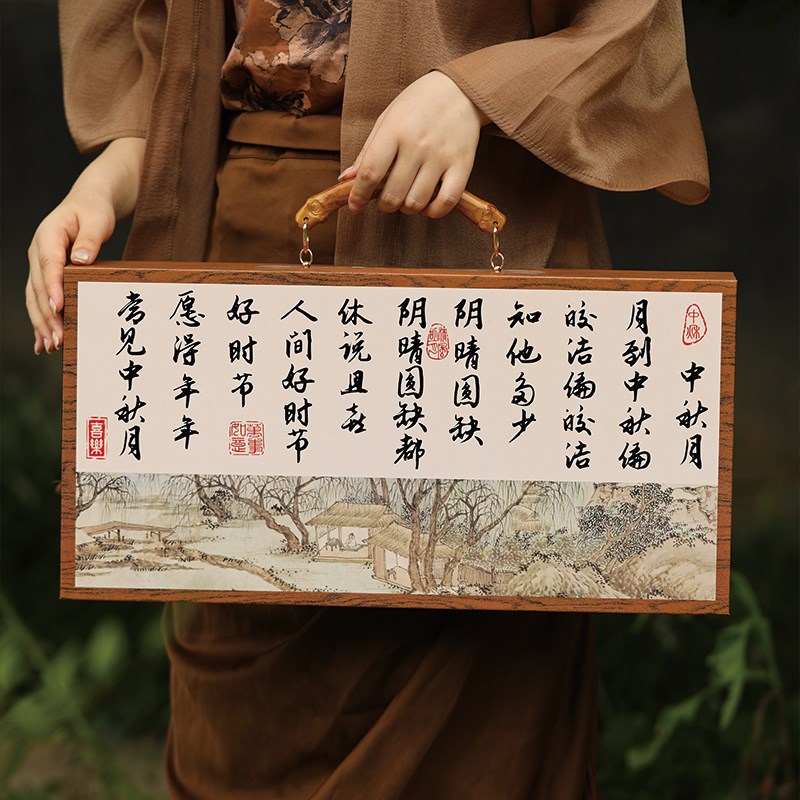 中秋
中秋月
月到中秋偏
皎洁偏皎洁
知他多少
阴晴圆缺
阴晴圆缺都
休说且喜
人间好时节
好时节
萬事如意
愿得年年
常见中秋月
喜樂